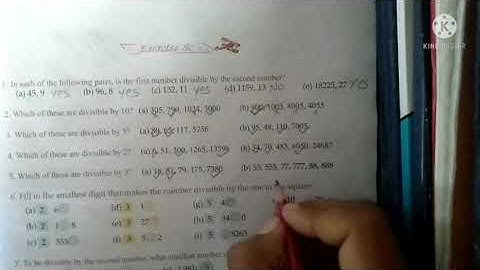 KINEMASTER
Exercise
1. In each of the following pairs, is the first number divisible by the second number?
(a) 45, 9 yes (b) 96, 8 yes (c) 132, 11 yes (d) 1159, 13 NO (e) 18225, 27 YES
2. Which of these are divisible by 10? (a) 305, 790, 1024, 3000 (b) 900, 1005, 8005, 4055
3. Which of these are divisible by 5? (a) 65, 117, 5256 (b) 95, 48, 110, 7005
4. Which of these are divisible by 3? (a) 6, 51, 300, 1265, 13598 (b) 34, 79, 483, 24687
5. Which of these are divisible by (a) 18, 81, 79, 175, 7380 (b) 55, 555, 77, 777, 88, 888
6. Fill in the smallest digit that makes the number divisible by the one in the square
(a) 2 6 (d) 3 1 (g) 5 4 10
(b) 2 1 8 (e) 3 27 (h) 5 34 0
(c) 2 555 (f) 3 5 2 (i) 5 8265
7. To be divisible by the second number, what smallest number